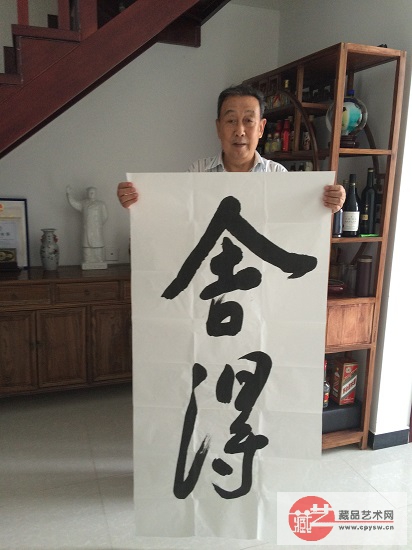 舍
得
藏艺
藏品艺术网
www.cpysw.cn